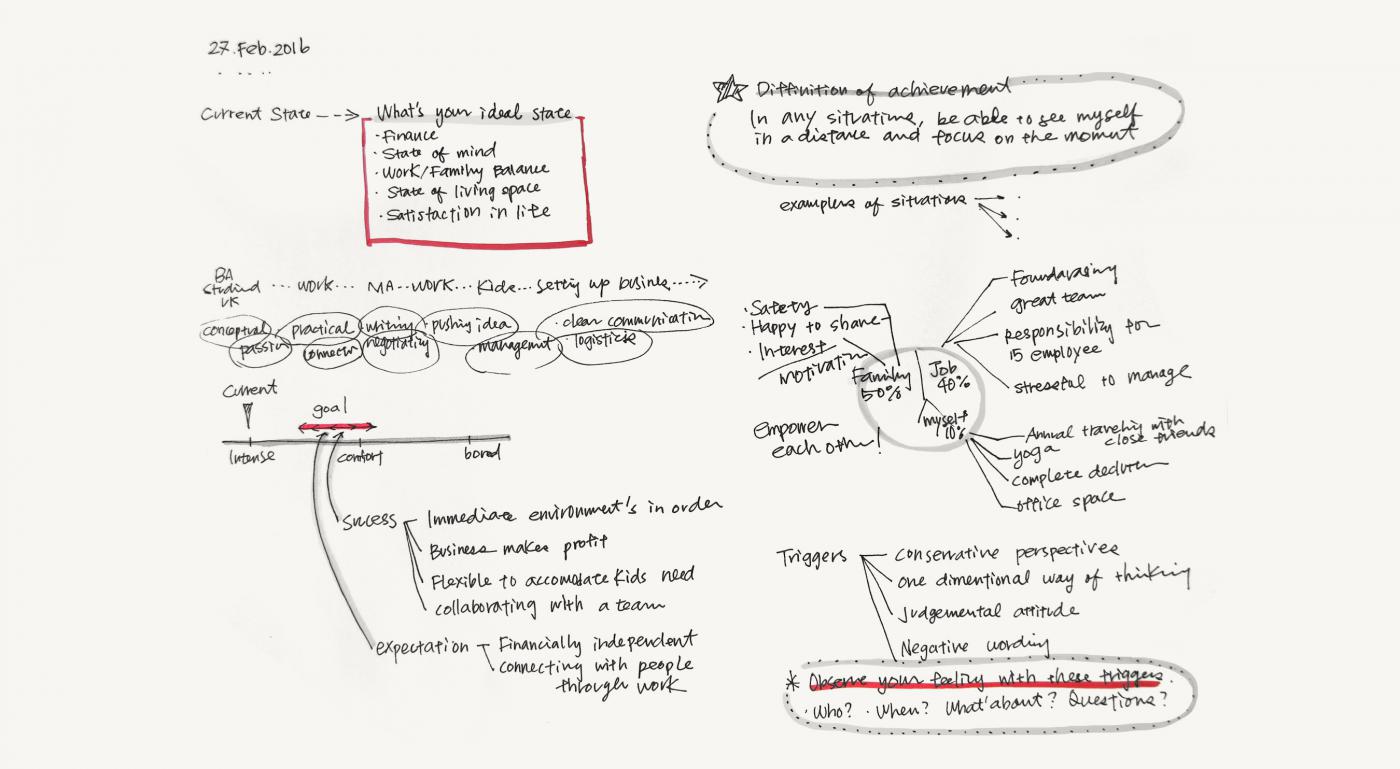 27.Feb.2016
Current State
What's your ideal state
· Finance
· State of mind
· Work/Family Balance
· State of living space
· Satisfaction in life
BA
Studied
UK
... work... MA--work... Kids... setting up busines
conceptual
practical
writing
pushing idea
· clear communication
passion
connector
negotiating
management
· logistics
Current
goal
Intense
comfort
bored
success
Immediate environment's in order
Business makes profit
Flexible to accomodate kids need
collaborating with a team
expectation
Financially independent
connecting with people
through work
Diffinition of achievement
In any situations, be able to see myself
in a distance and focus on the moment
examples of situations
· Safety
· Happy to share
· Interest
Motivation
Family
50%
Job
40%
myself
10%
Empower
each other!
great team
Responsibility for
15 employee
stressful to manage
Annual traveling with
close friends
yoga
complete
office space
Triggers
conservative perspectives
one dimentional way of thinking
Judgemental attitude
Negative wording
* Observe your feeling with these triggers.
· Who? · When? What about? Questions?